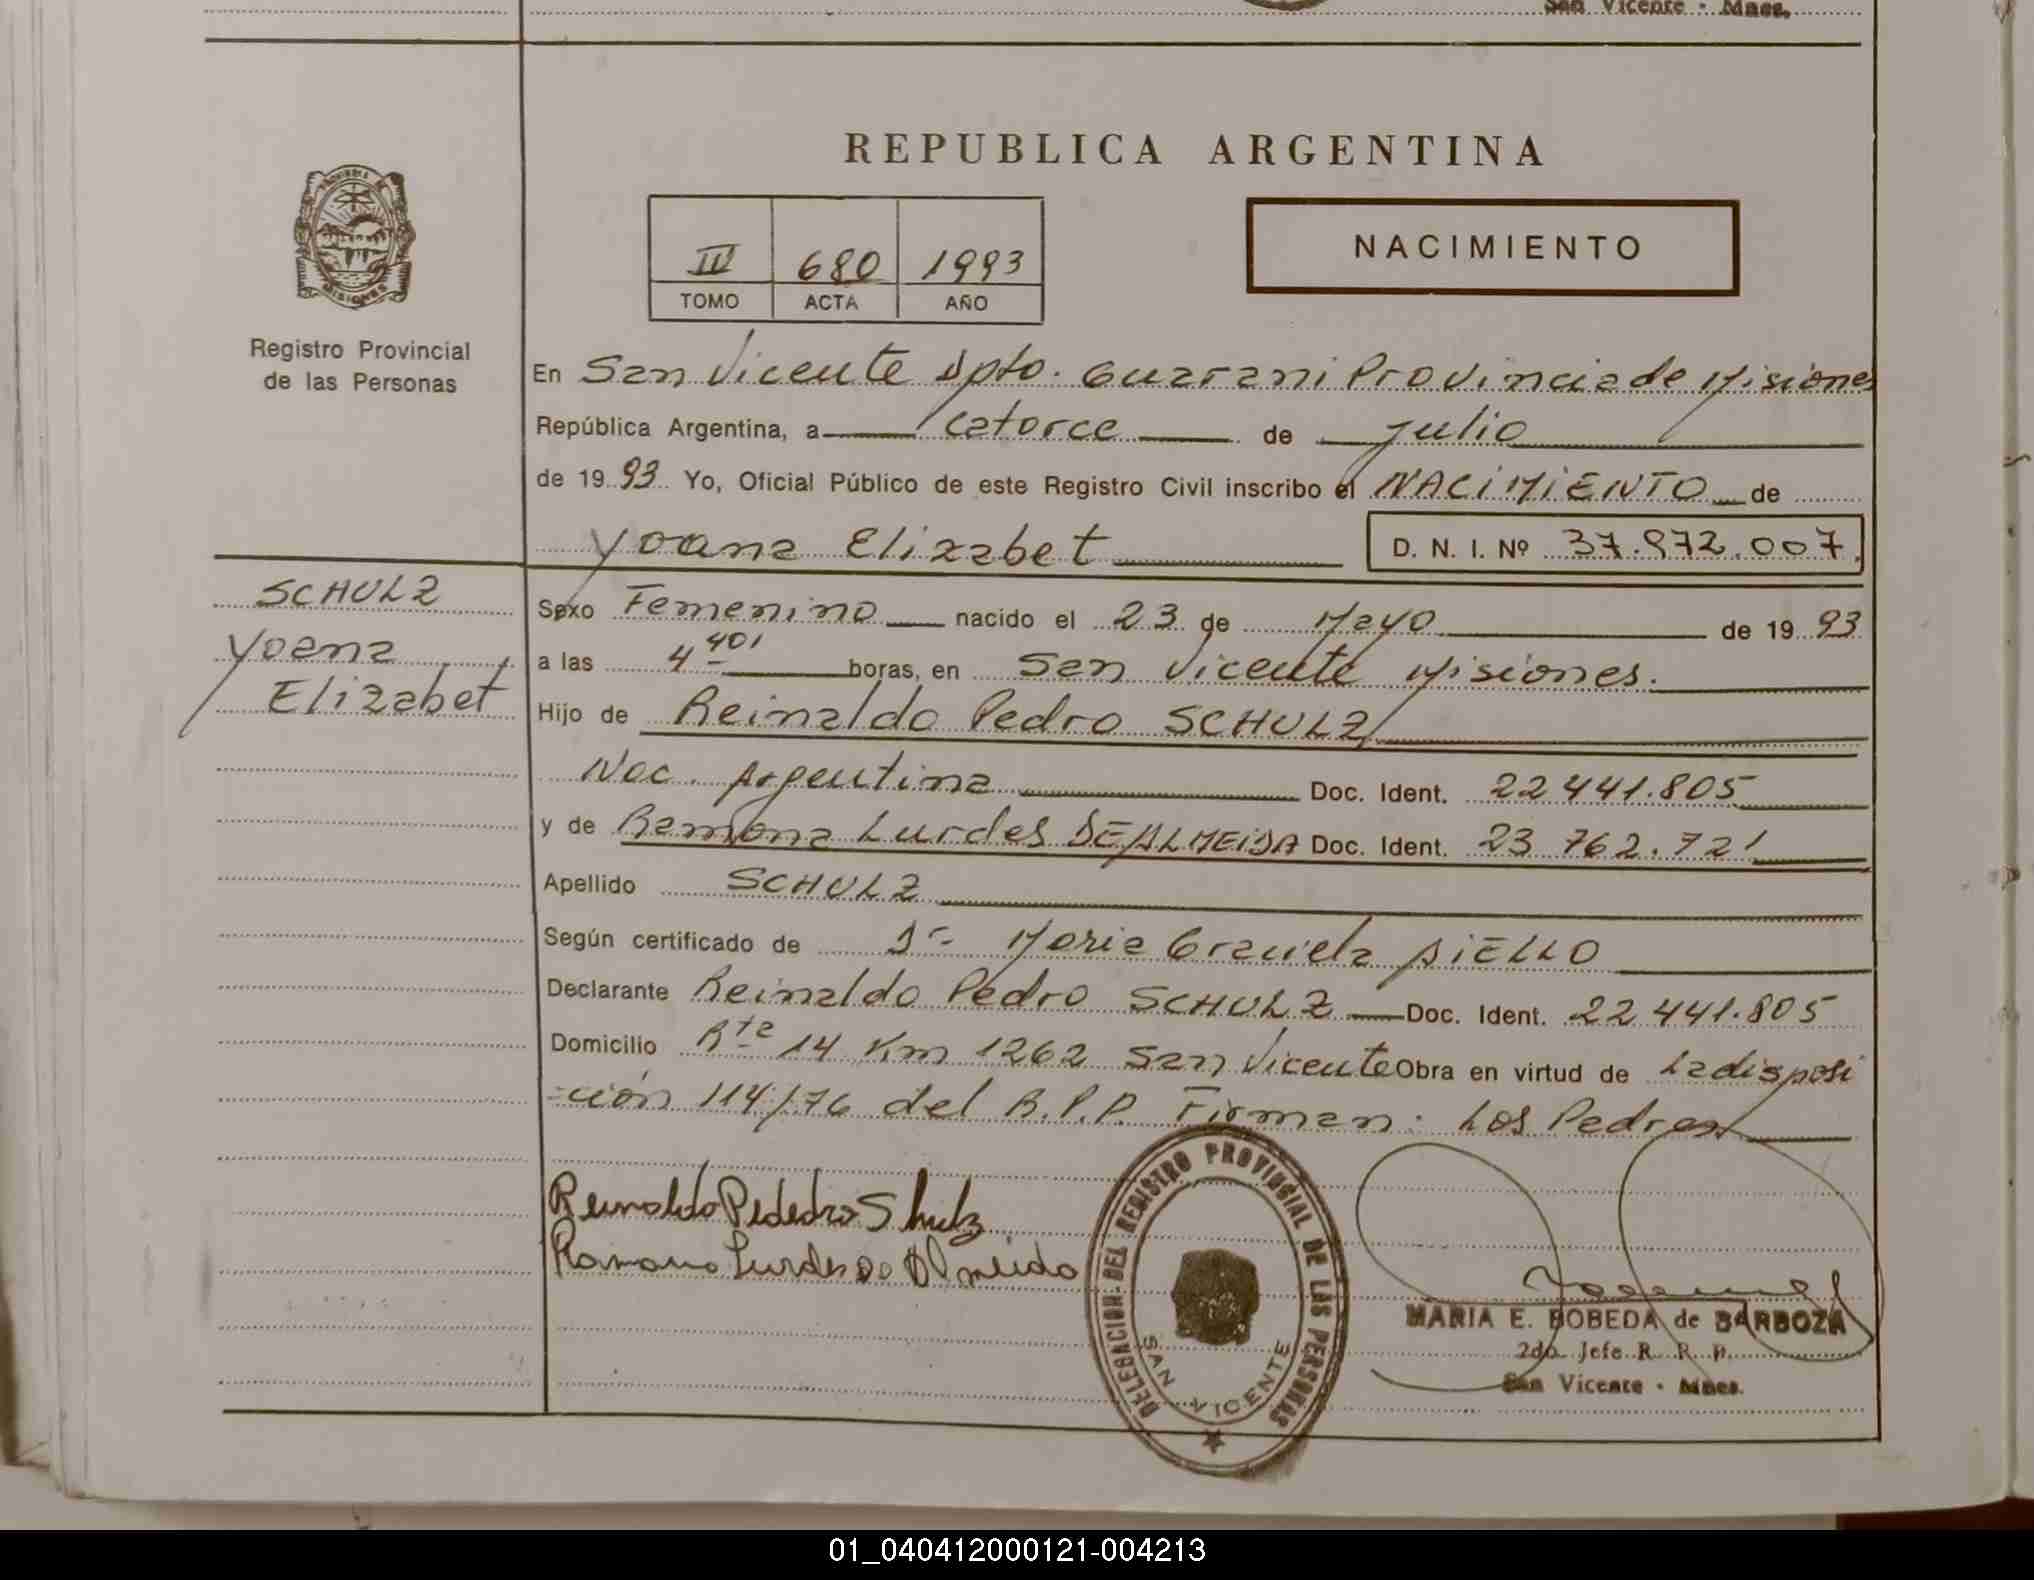 San Vicente - Mnes.
REPUBLICA ARGENTINA
PROVINCIA DE
MISIONES
Registro Provincial
de las Personas
IV 680 1993
TOMO ACTA AÑO
NACIMIENTO
En San Vicente Dpto. Guarani Provincia de Misiones
República Argentina, a catorce de julio
de 1993 Yo, Oficial Público de este Registro Civil inscribo el NACIMIENTO de
Yoana Elizabet D. N. I. Nº 37.972.007
SCHULZ
Yoana
Elizabet
Sexo Femenino nacido el 23 de Mayo de 1993
a las 4 40' horas, en San Vicente Misiones.
Hijo de Reinaldo Pedro SCHULZ
Nac. Argentina Doc. Ident. 22 441.805
y de Ramona Lurdes DE ALMEIDA Doc. Ident. 23 762.721
Apellido SCHULZ
Según certificado de Dra Maria Graciela AIELLO
Declarante Reinaldo Pedro SCHULZ Doc. Ident. 22 441.805
Domicilio Rta 14 Km 1262 San Vicente Obra en virtud de La disposi
=ción 114/76 del R.P.P. Firman: Los Padres
Reinaldo Pededro Shulz
Ramona Lurdes De Almeida
DELEGACION DEL REGISTRO PROVINCIAL DE LAS PERSONAS
SAN VICENTE
MARIA E. BOBEDA de BARBOZA
2do. Jefe R. R. P.
San Vicente - Mnes.
01_040412000121-004213